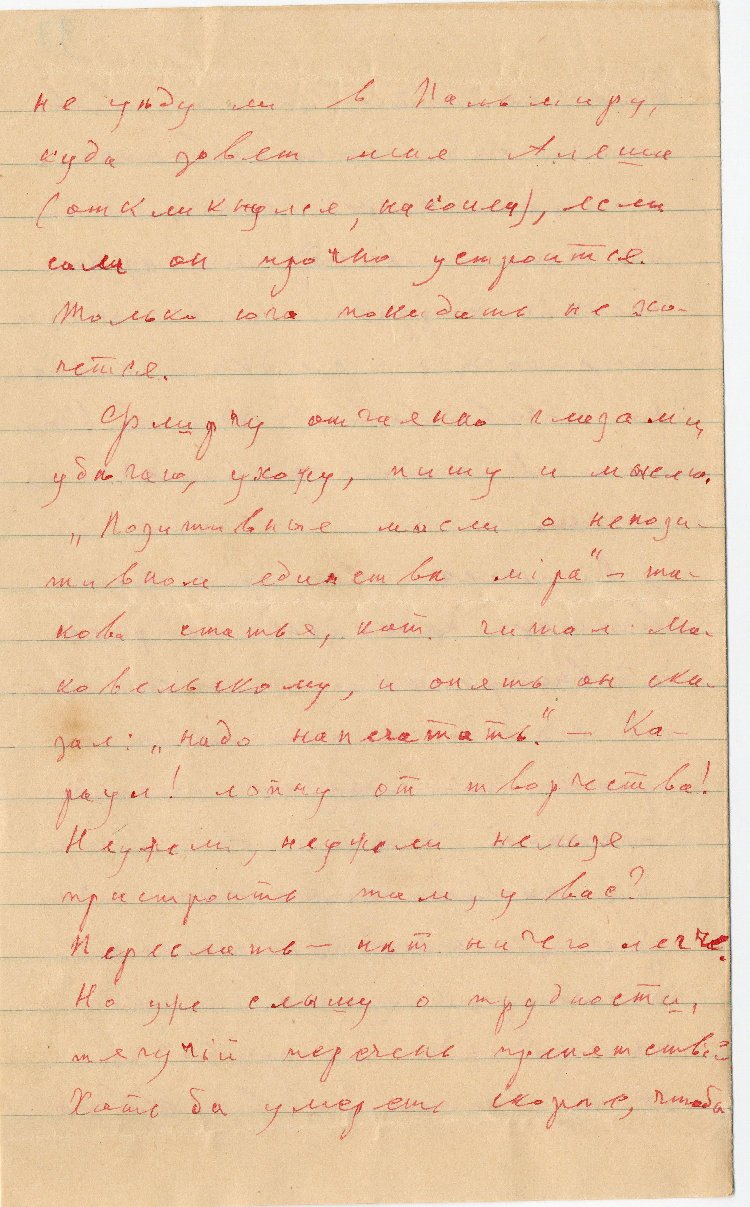 не уѣду ли в Пальмиру,
куда зовет меня Алеша
(откликнулся, наконец), если
сам он прочно устроится.
Только юга покидать не хо-
чется.
Флирчу отчаянно глазами,
убѣгаю, ухожу, пишу и мыслю.
„Позитивные мысли о непози-
тивном единствѣ міра" – та-
кова статья, кот. читал Ма-
ковельскому, и опять он ска-
зал: „надо напечатать." – Ка-
раул! лопну от творчества!
Неужели, неужели нельзя
пристроить там, у вас?
Переслать – нѣт ничего легче.
Но уже слышу о трудности,
тягучій перечень препятствій
Хоть бы умереть скорѣе, чтобы